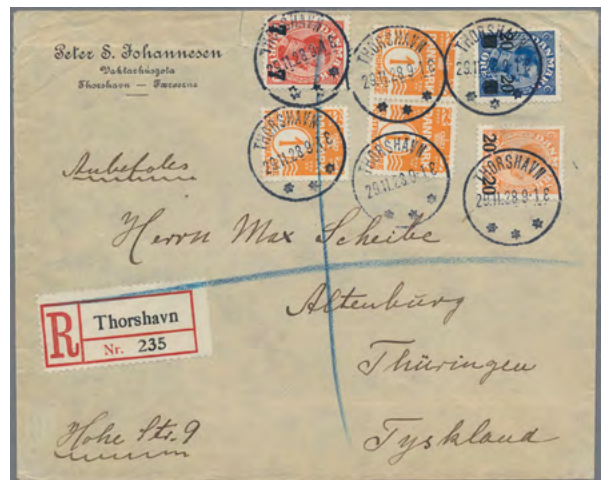 Peter S. Johannesen
Vaktarhúsgota
Thorshavn — Færøerne
DANMARK
THORSHAVN
29.11.28.9-1.E
7 7
THORSHAVN
29.11.28.9-1.E
1
DANMARK
20 20
THORSHAVN
29.11.28.9-1.E
1
THORSHAVN
29.11.28.9-1.E
1
THORSHAVN
29.11.28.9-1.E
20 20
THORSHAVN
29.11.28.9-1.E
Anbefales
Herrn Max Scheibe
Altenburg
Thüringen
Tyskland
R Thorshavn
Nr. 235
Hohe Str. 9